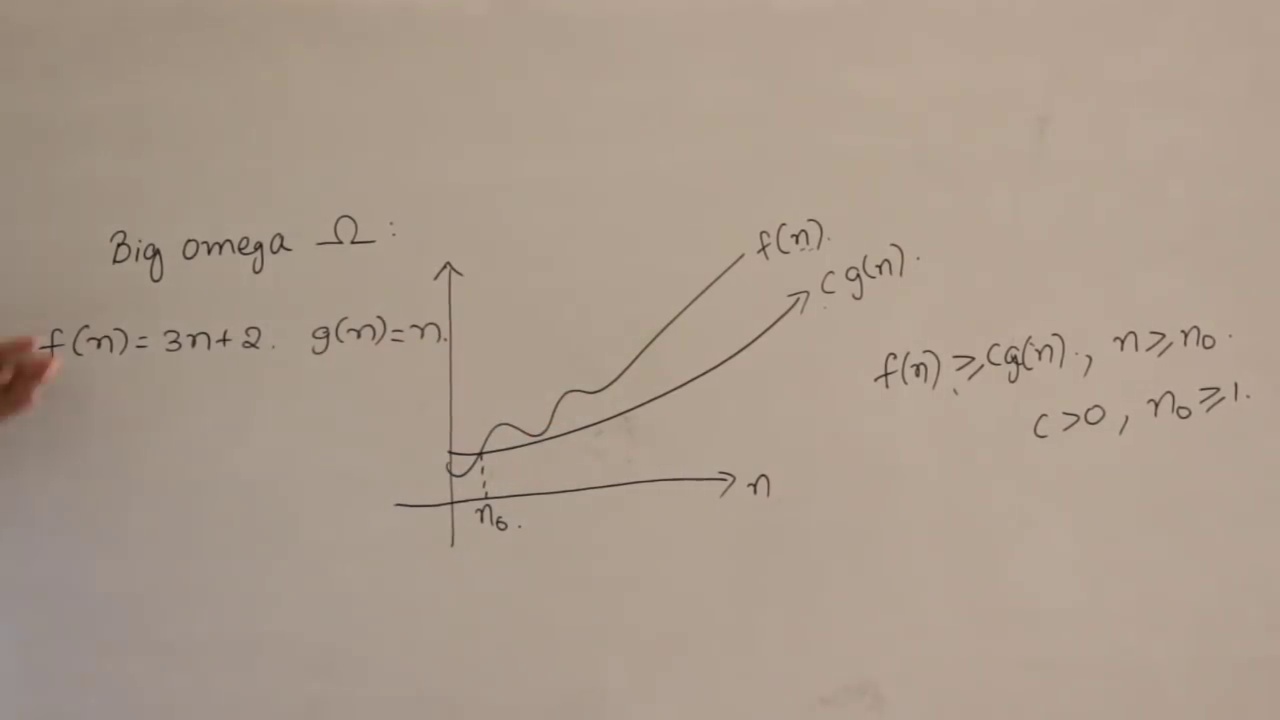 Big omega Ω :
f(n) = 3n+2. g(n) = n.
f(n).
c g(n).
f(n) ≥ cg(n)., n ≥ n₀.
c > 0, n₀ ≥ 1.
n
n₀.